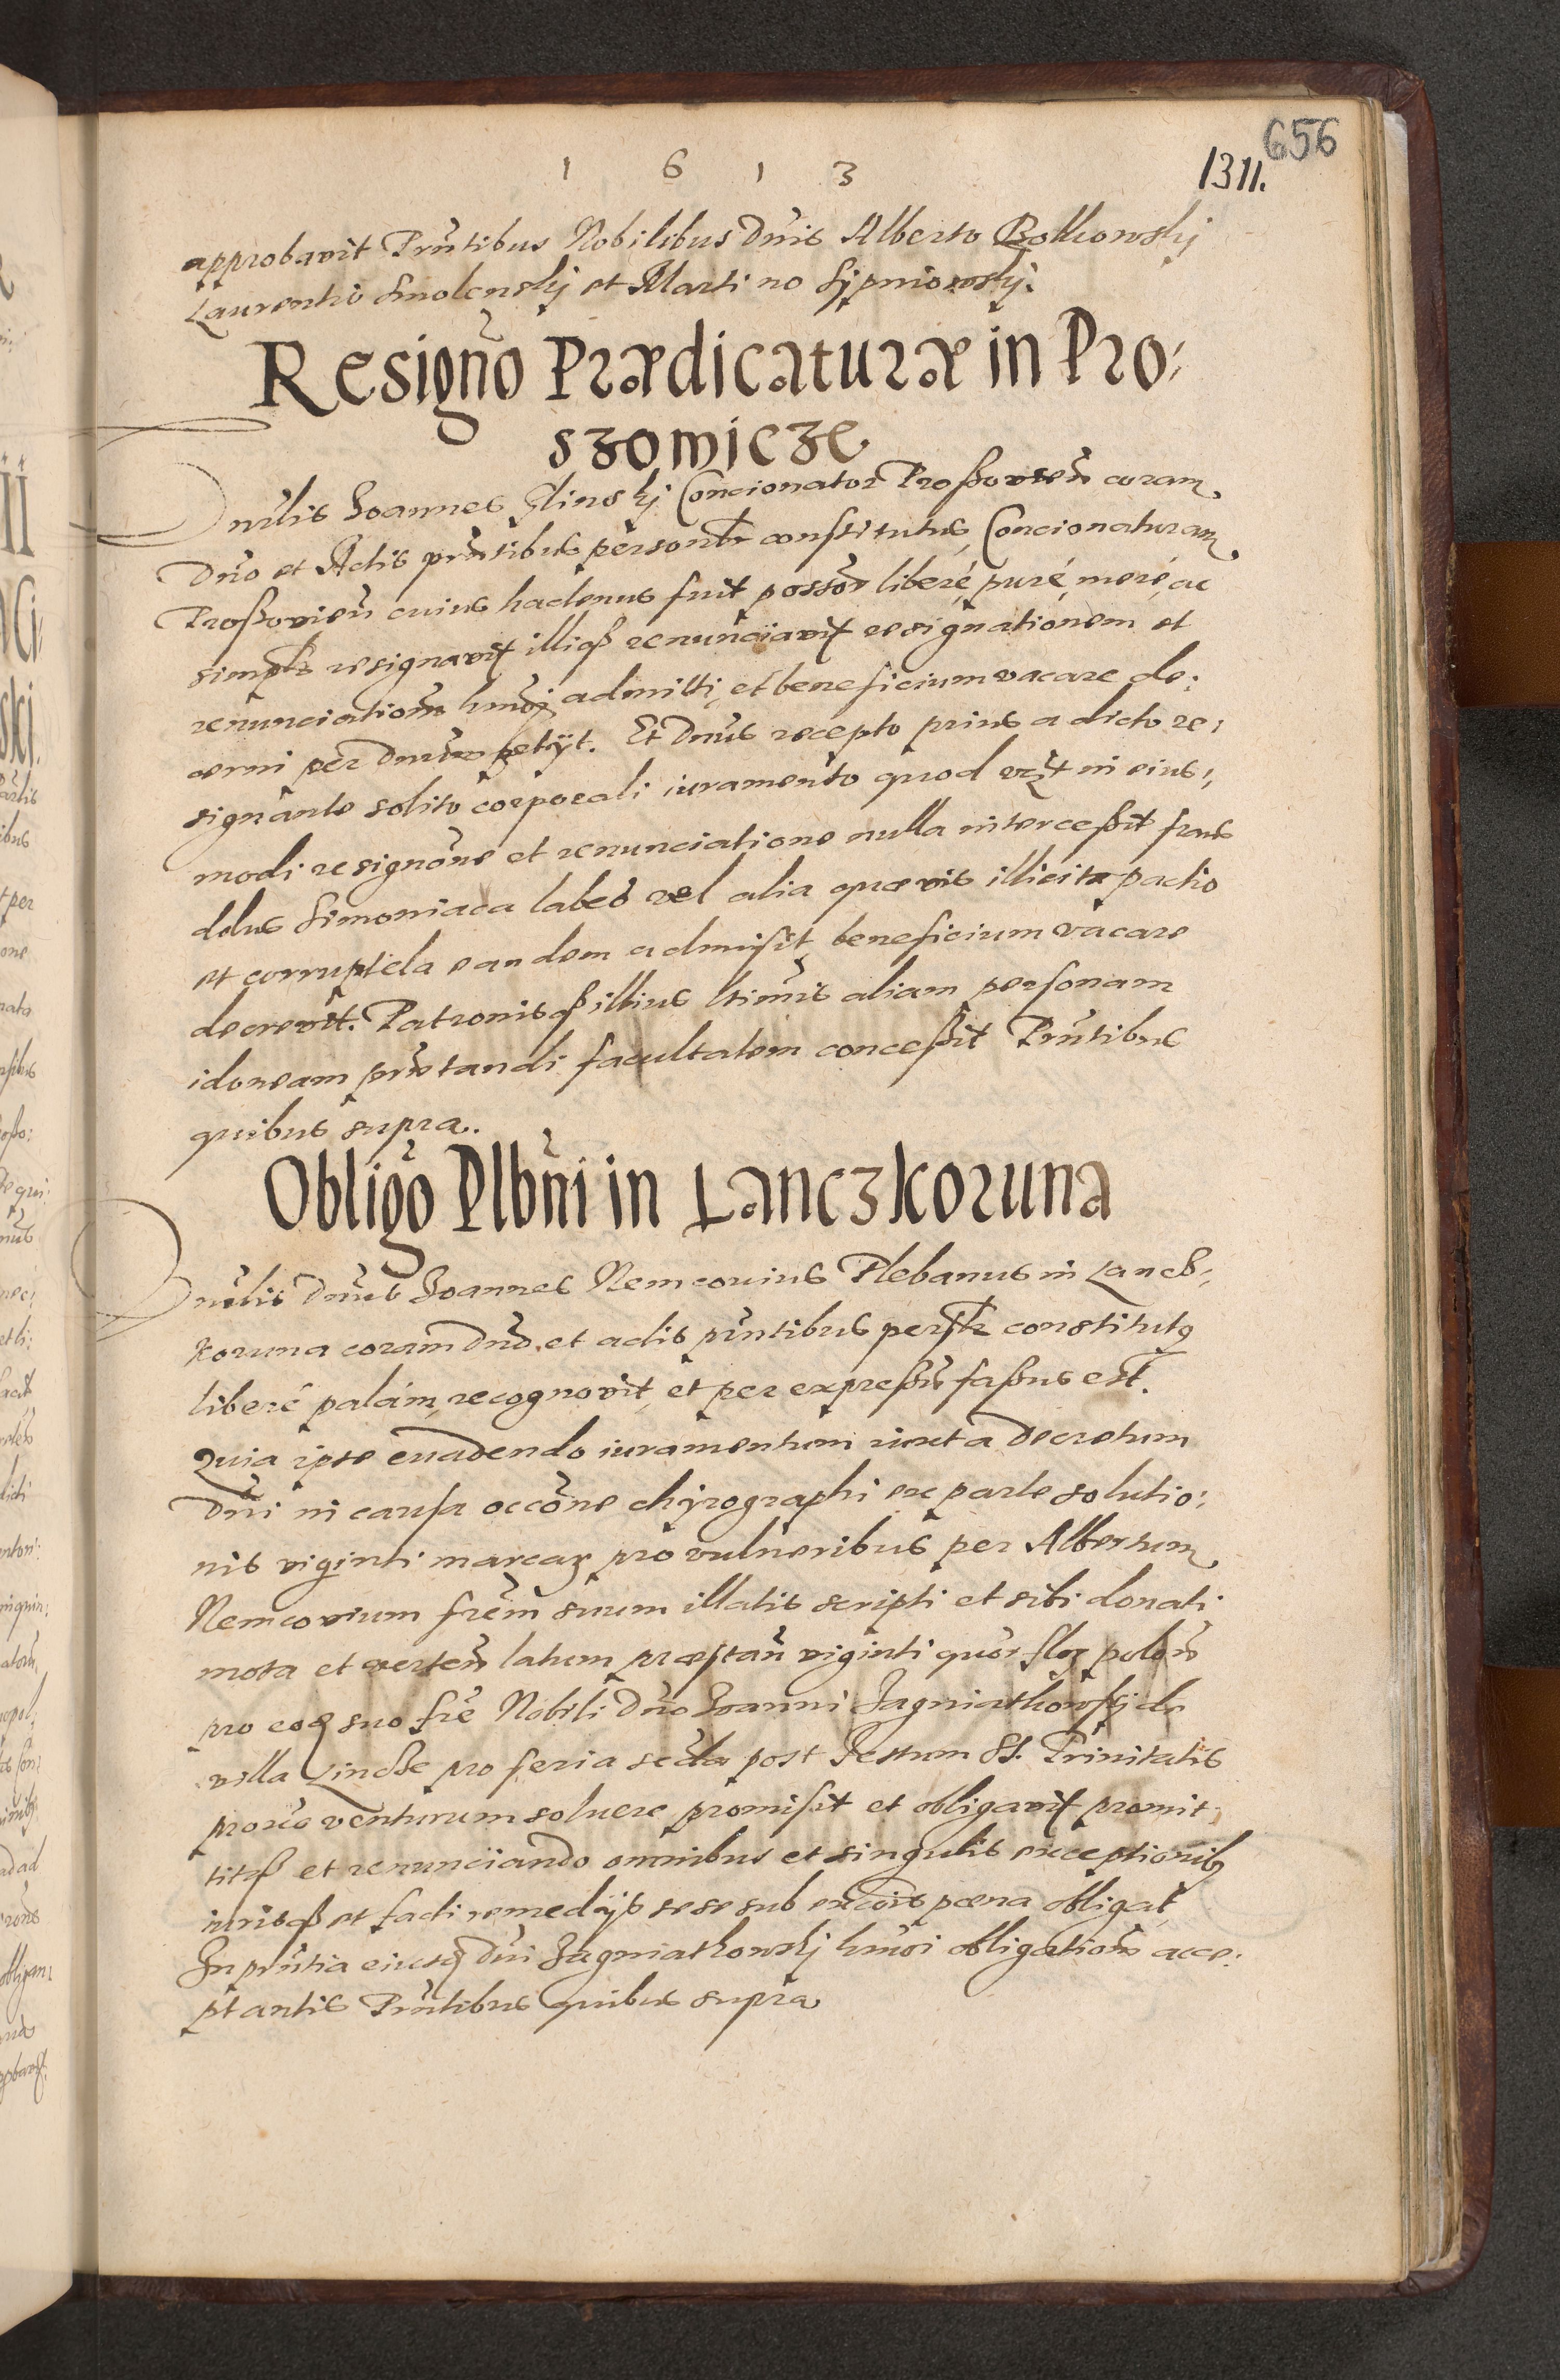 656
1311.
1 6 1 3
approbavit Prn̄tibus Nobilibus Dnis Alberto Bolkowskj
Laurentio Smolenskj et Martino Sypniowskj.
Resigño Prædicaturæ in Pro:
szowicze
Dnilis Joannes Glinskj Concionator Proßovien̄ coram
Dno et Actis prn̄tibus personłr constitutus, Concionaturam
Proßovien̄ cuius hactenus fuit possor liberé, puré, meré, ac
simplr resignavit illiqß renunciavit resignationem et
renunciationem hmoi admitti, et beneficium vacare de:
cerni per Dnum petijt. Et Dnus recepto prius a dicto re:
signante solito corporali iuramento quod vrzt in eius:
modi resignōne et renunciatione nulla intercessit fraus
dolus Simoniaca labes vel alia quævis illicita pactio
et corruptela eandem admisit, beneficium vacare
decrevit. Patronisqß illius ltimis aliam personam
idoneam prn̄tandi facultatem conceßit Prn̄tibus
quibus supra.
Obligo Plbñi in Lanczkoruna
Dnilis Dnus Joannes Nemcovius Plebanus in Lancz:
koruna coram Dno. et actis prn̄tibus persłr constitutq
liberé palám, recognovit, et per expreßum faßus est.
Quia ipse evadendo iuramentum iuxta Decretum
Dni in causa occōne chyrographi ex parte solutio:
nis viginti marcar pro vulneribus per Albertum
Nemcovium frem suum illatis scripti et sibi donati
mota et verten̄ latum præstan̄ viginti quor flor polon̄
pro eoq suo fre Nobili Dno Joanni Jagniatkowskj de
villa Lincze pro feria secda post Festum SS. Trinitatis
proxe venturum soluere promisit et obligavit promit:
titqß et renunciando omnibus et singulis exceptionibq
iurisqß et facti remedijs sese sub excois pœna obligat
In prn̄tia eiusdq Dni Jagniatkowskj hmoi obligationem acce:
ptantis Prn̄tibus quibus supra